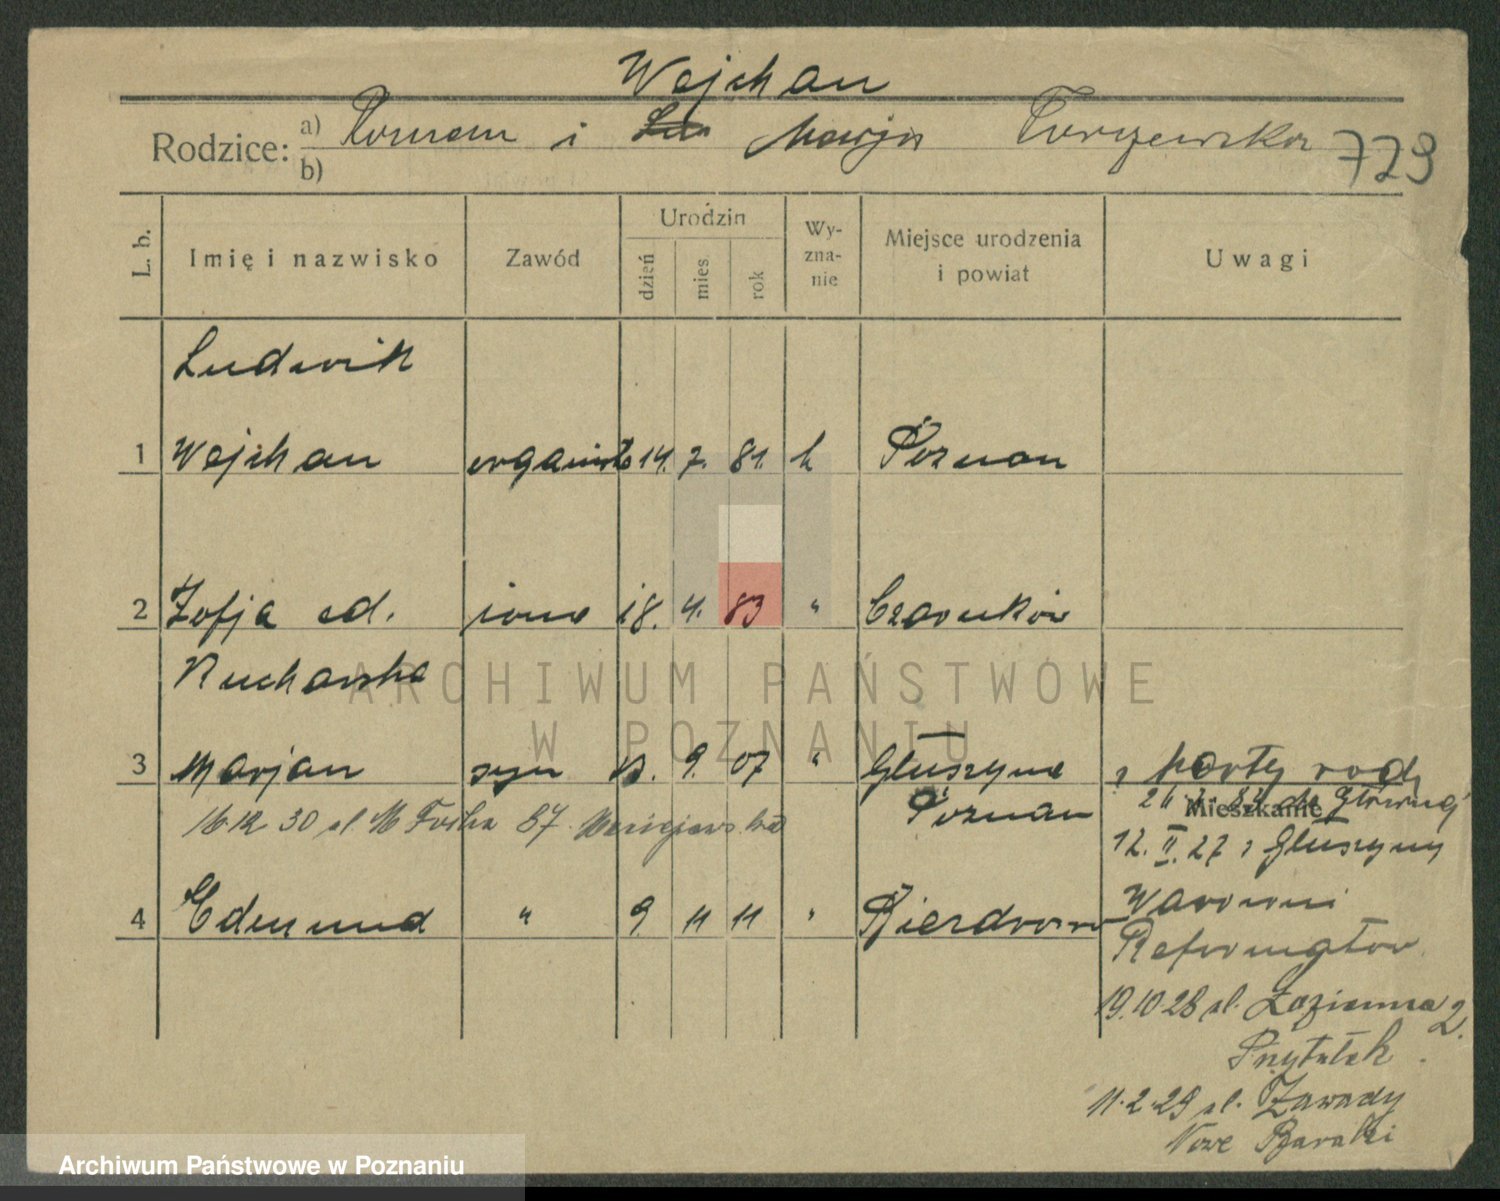 Wojchan
Rodzice: a) Roman i Marja Turzewska 729
b)
L. b. Imię i nazwisko Zawód Urodzin dzień mies. rok Wyznanie Miejsce urodzenia i powiat Uwagi
Ludwik
1 Wojchan organista 14. 7. 81. k Poznan
2 Zofja od. żona 18. 4. 83 " Czarnków
Rucharska
3 Marjan syn 9. 07 " Głuszyna z karty rodz
Poznan Mieszkanie
16 12 30 ul. M Focha 87
12. II. 27 z Głuszyny
4 Edmund " 9. 11 11 " Bierdrowo Warowni
Reformatów
19.10.28 ul. Łazienna 2.
Przytułek
11.2.29 ul. Zawady
Nowe Baraki
ARCHIWUM PAŃSTWOWE
W POZNANIU
Archiwum Państwowe w Poznaniu